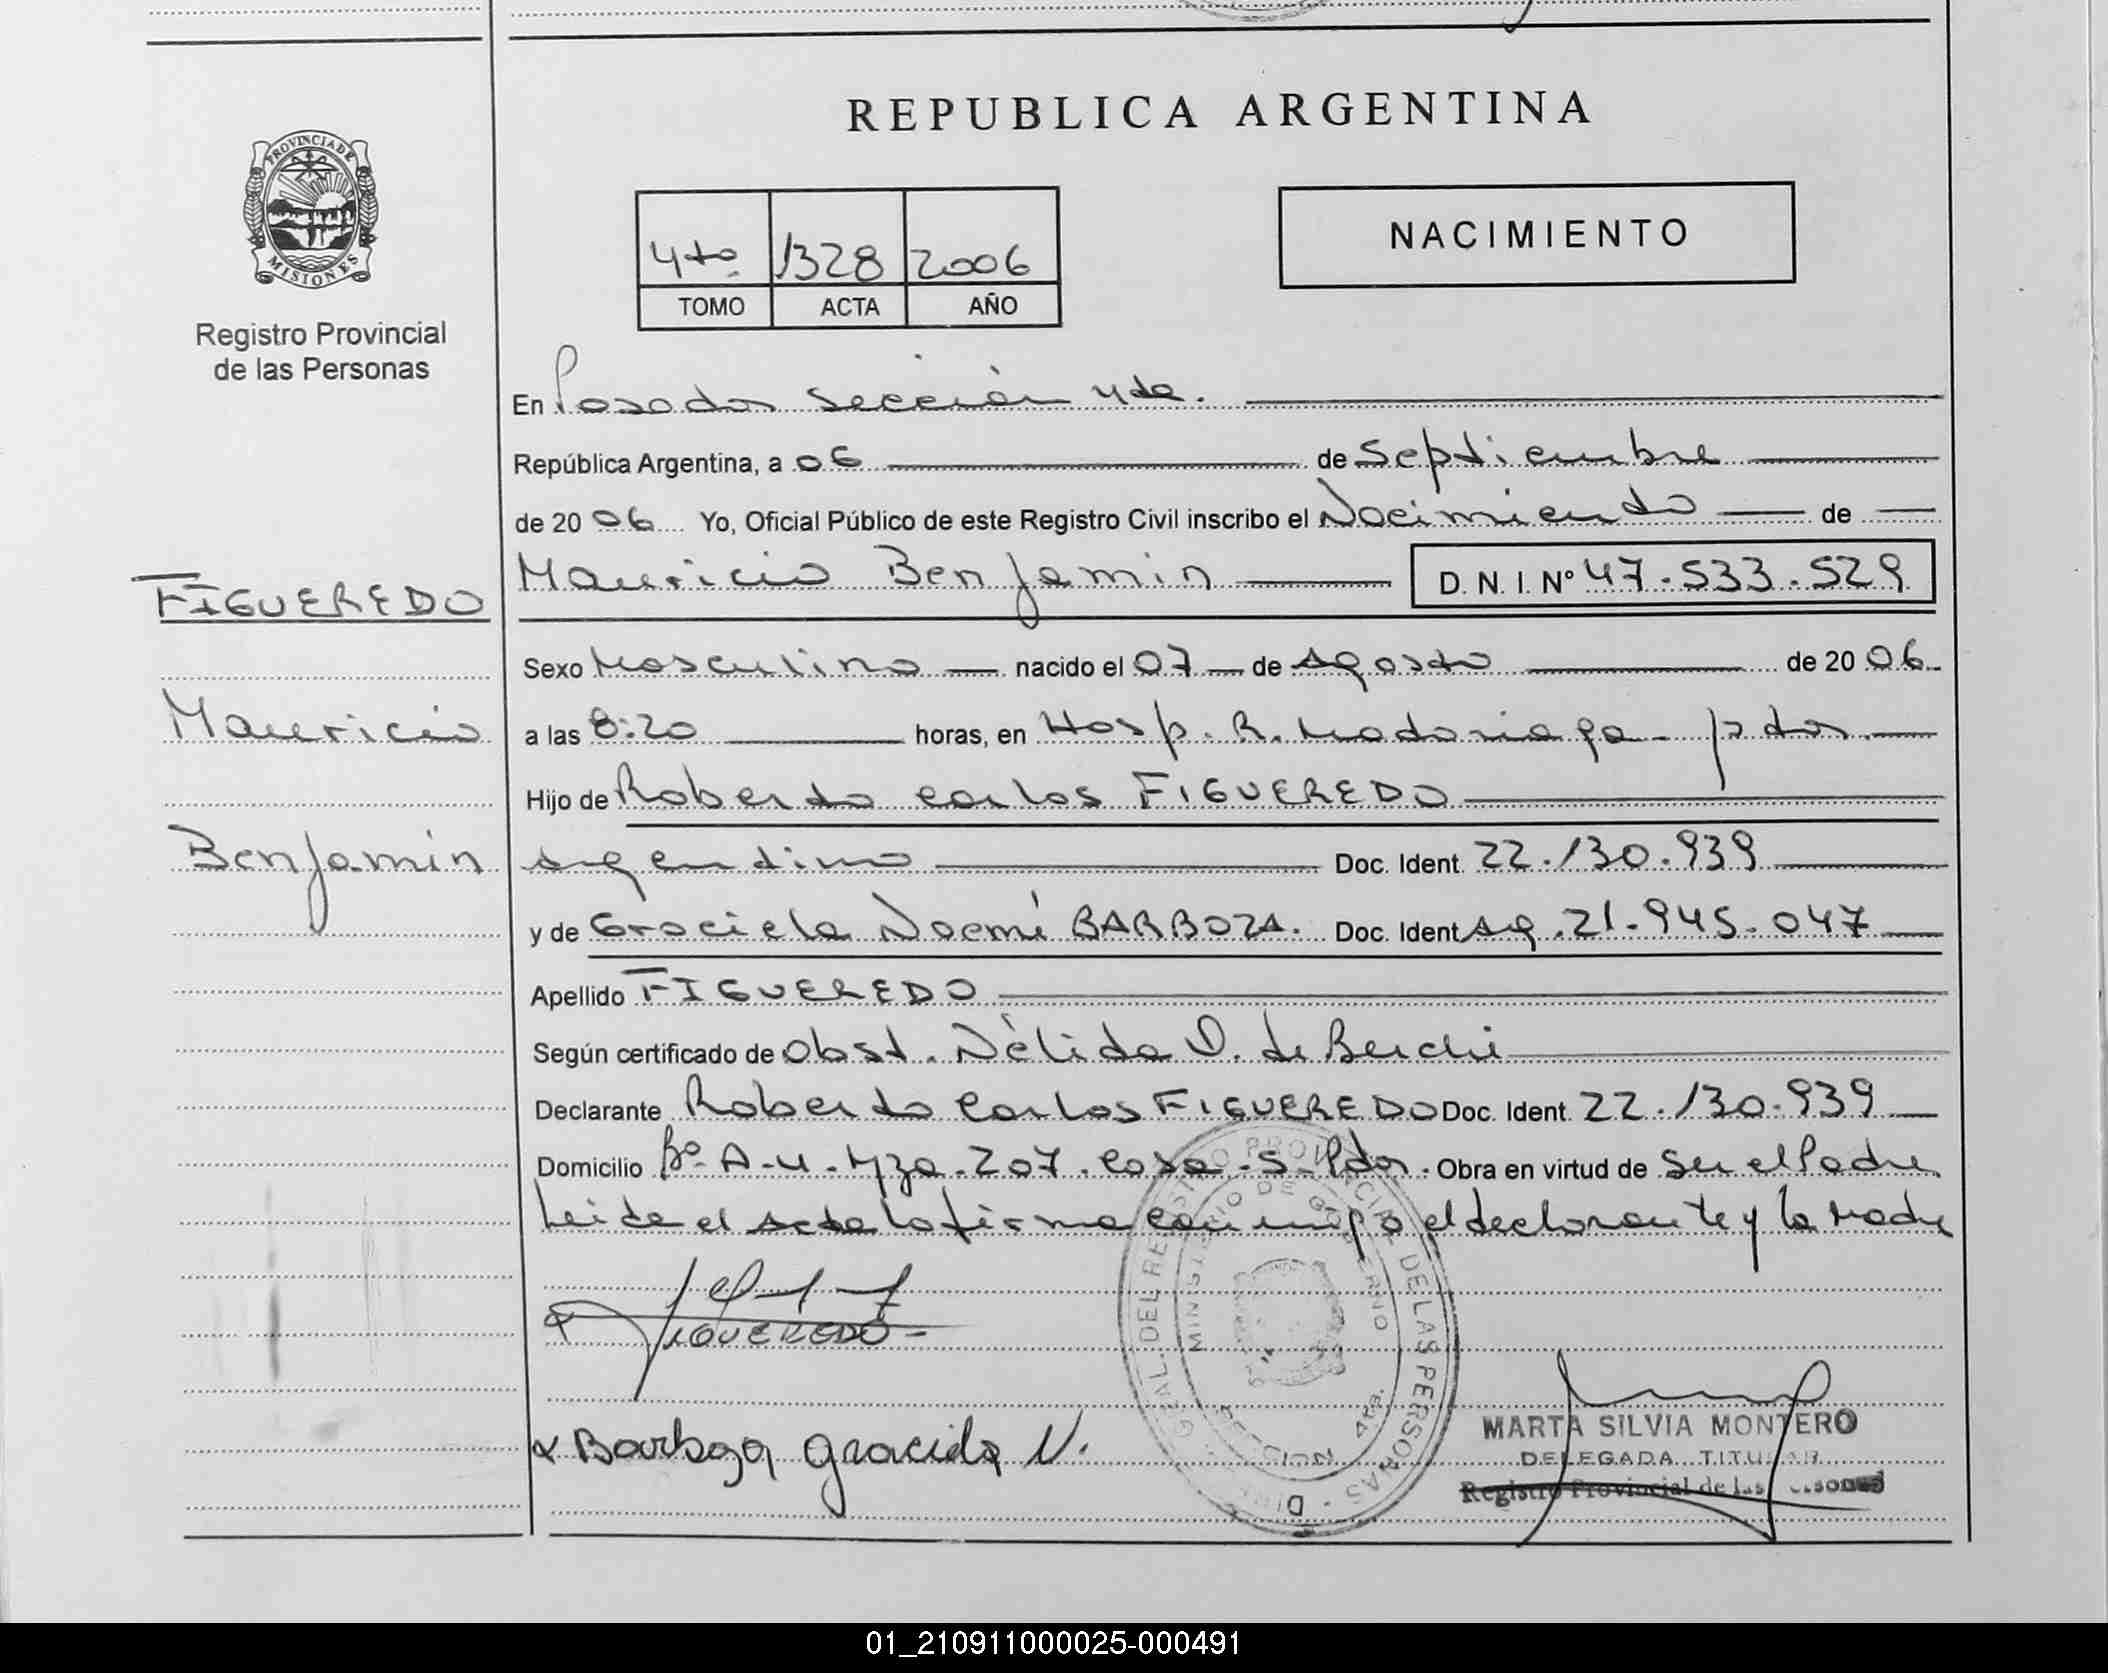 REPUBLICA ARGENTINA
PROVINCIA DE
MISIONES
Registro Provincial
de las Personas
4to. 1328 2006
TOMO ACTA AÑO
NACIMIENTO
En Posadas Sección 4ta.
República Argentina, a 06 de Septiembre
de 20 06 Yo, Oficial Público de este Registro Civil inscribo el Nacimiento de
FIGUEREDO
Mauricio Benjamin D. N. I. Nº 47.533.529
Sexo Masculino nacido el 07 de Agosto de 20 06
Mauricio
a las 8:20 horas, en Hosp. R. Madariaga - Pdas.
Hijo de Roberto Carlos FIGUEREDO
Benjamin
argentino Doc. Ident. 22.130.939
y de Graciela Noemí BARBOZA. Doc. Ident Ag. 21.945.047
Apellido FIGUEREDO
Según certificado de Obst. Nélida D. de
Declarante Roberto Carlos FIGUEREDO Doc. Ident. 22.130.939
Domicilio Bº. A-4. Mza. 207. Casa. 5. Pdas. Obra en virtud de Ser el Padre
Leida el acta la firma conmigo el declarante y la Madre
FIGUEREDO
Barboza Graciela N.
DEL REGISTRO PROVINCIAL DE LAS PERSONAS
MINISTERIO DE GOBIERNO
4ta.
MARTA SILVIA MONTERO
DELEGADA TITULAR
Registro Provincial de las Personas
01_210911000025-000491